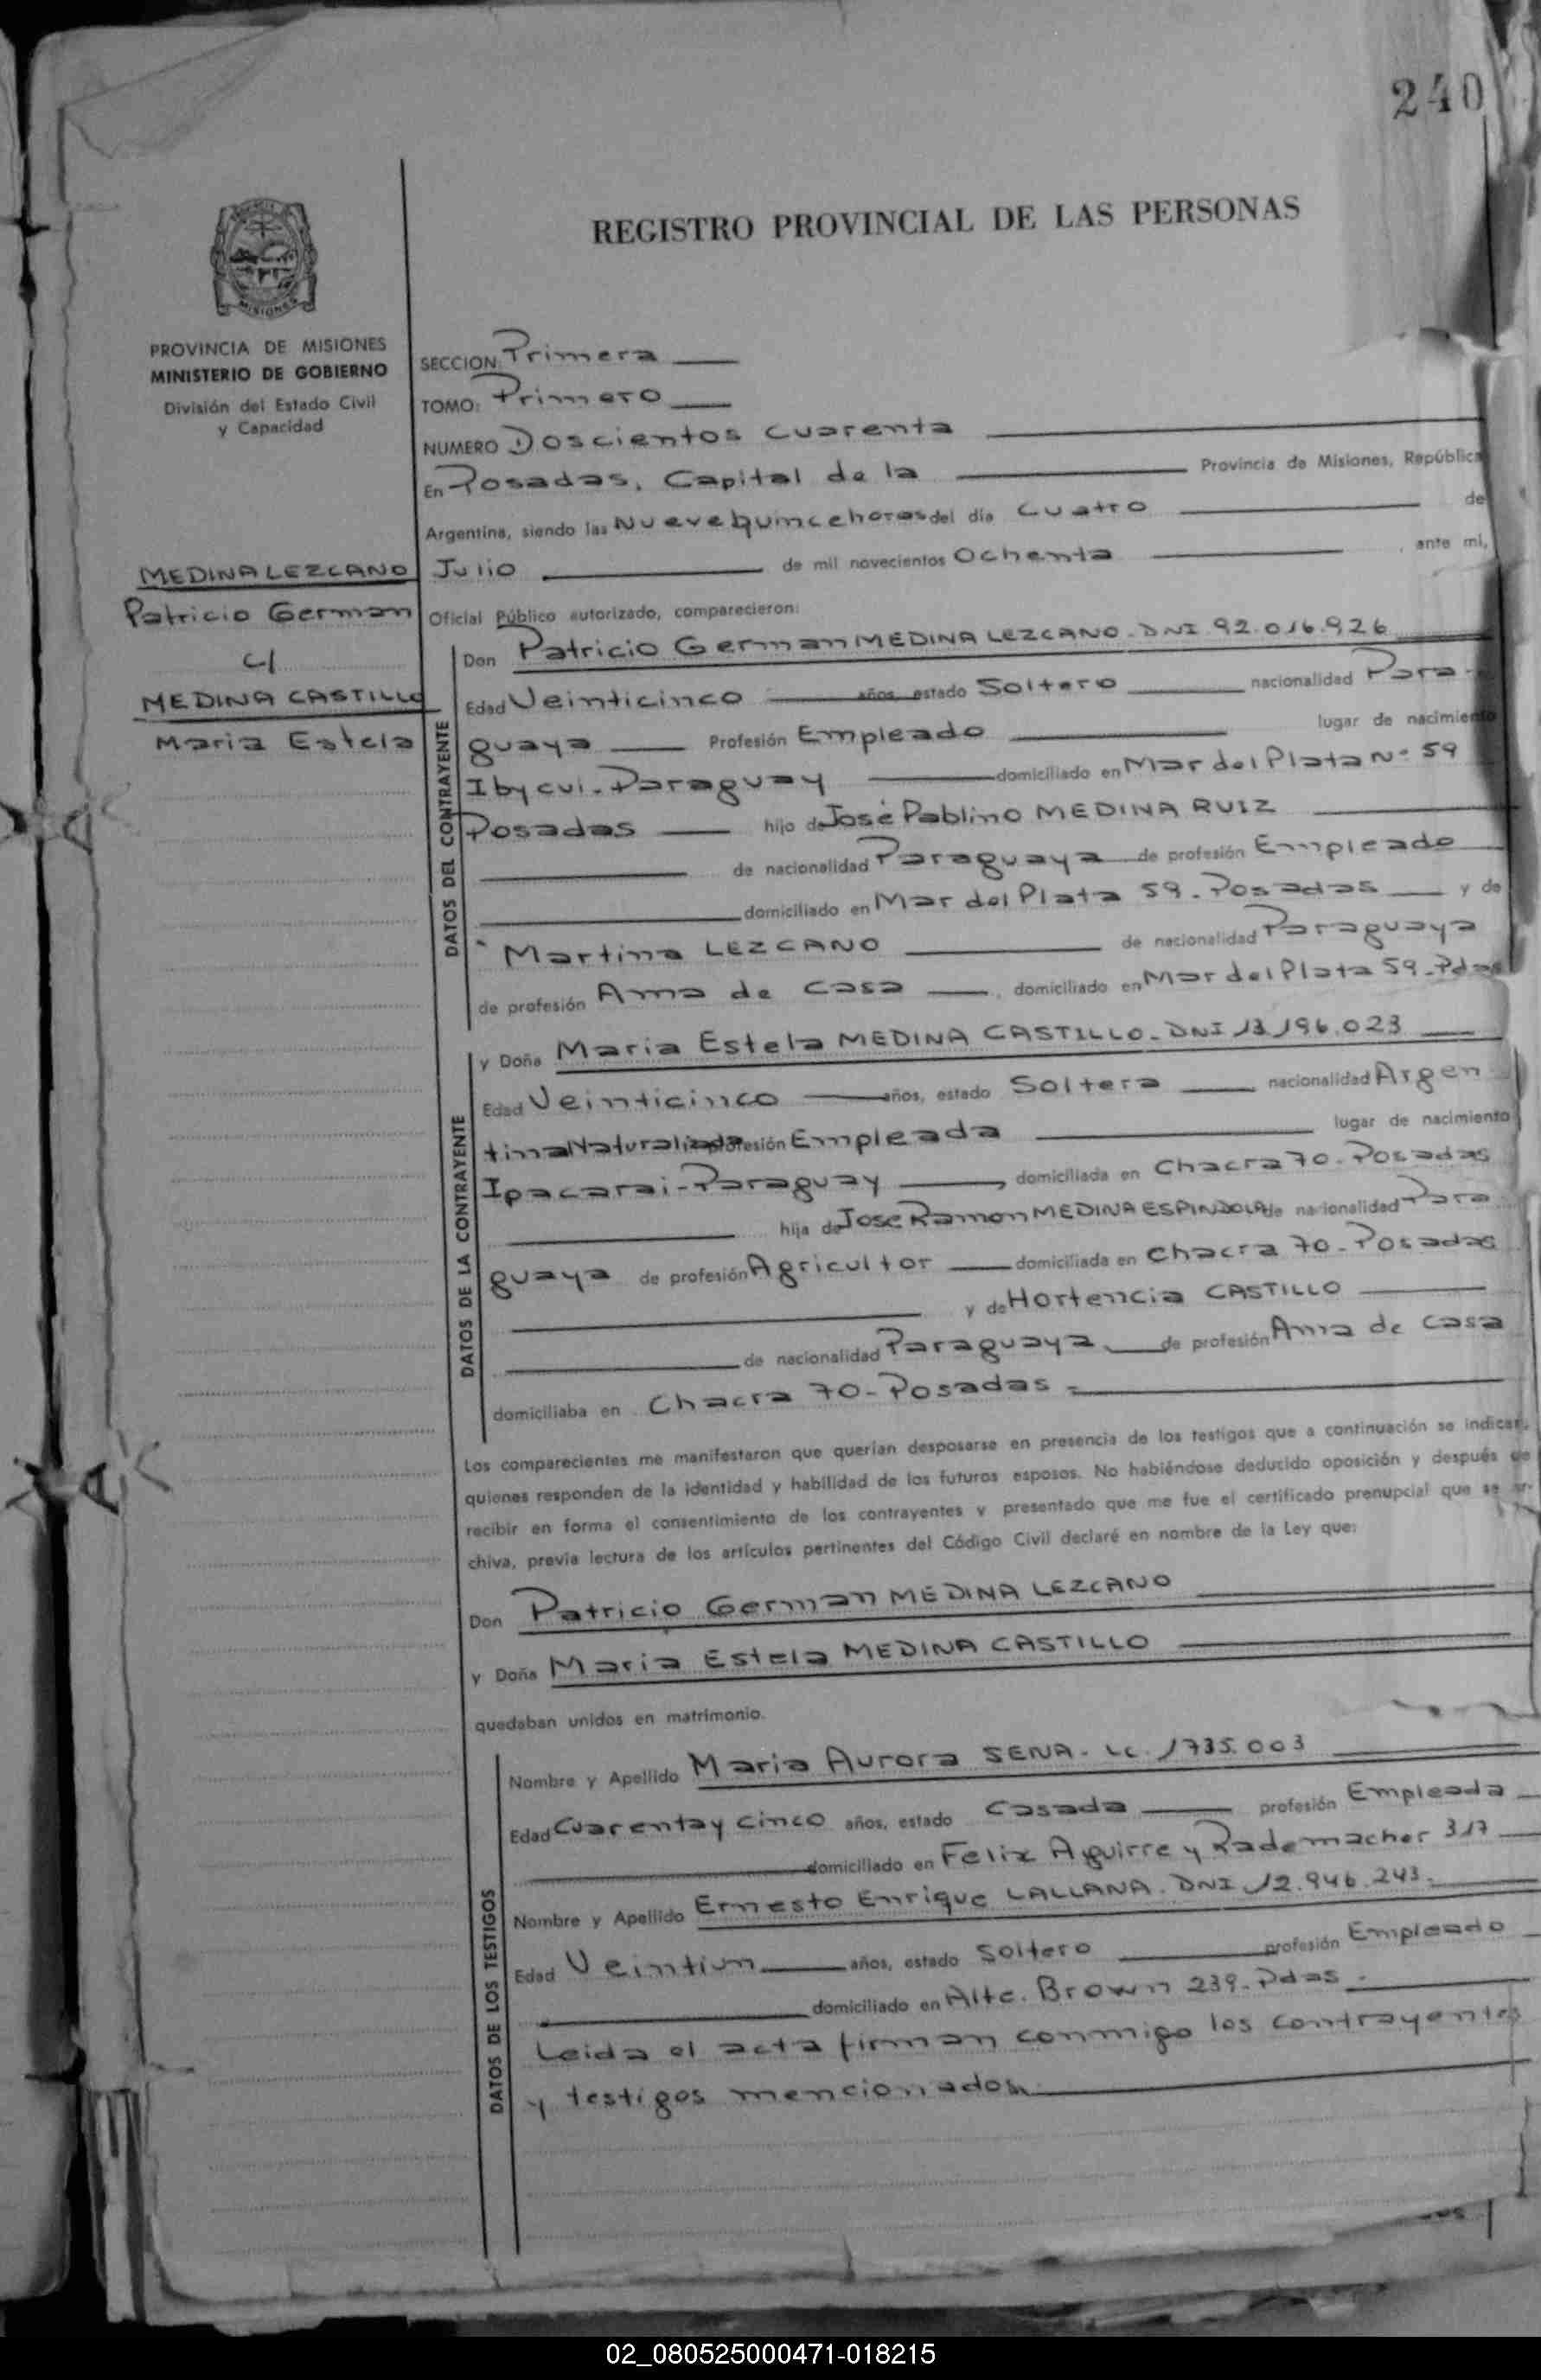 240
REGISTRO PROVINCIAL DE LAS PERSONAS
MISIONES
PROVINCIA DE MISIONES
MINISTERIO DE GOBIERNO
División del Estado Civil
y Capacidad
SECCION: Primera
TOMO: Primero
NUMERO Doscientos cuarenta
En Posadas, Capital de la Provincia de Misiones, República
Argentina, siendo las Nueve quince horas del día Cuatro de
Julio de mil novecientos Ochenta, ante mi,
Oficial Público autorizado, comparecieron:
MEDINA LEZCANO
Patricio German
c/
MEDINA CASTILLO
Maria Estela
DATOS DEL CONTRAYENTE
Don Patricio German MEDINA LEZCANO. DNI 92.016.926
Edad Veinticinco años, estado Soltero nacionalidad Para-
guaya Profesión Empleado lugar de nacimiento
Ibycui-Paraguay domiciliado en Mar del Plata Nº 59
Posadas hijo de José Pablino MEDINA RUIZ
de nacionalidad Paraguaya de profesión Empleado
domiciliado en Mar del Plata 59-Posadas y de
Martina LEZCANO de nacionalidad Paraguaya
de profesión Ama de casa, domiciliado en Mar del Plata 59-Pdas
DATOS DE LA CONTRAYENTE
y Doña Maria Estela MEDINA CASTILLO-DNI 13.196.023
Edad Veinticinco años, estado Soltera nacionalidad Argen
tina Naturalizada profesión Empleada lugar de nacimiento
Ipacarai-Paraguay, domiciliada en Chacra 70-Posadas
hija de Jose Ramon MEDINA ESPINDOLA de nacionalidad Para
guaya de profesión Agricultor domiciliada en Chacra 70-Posadas
y de Hortencia CASTILLO
de nacionalidad Paraguaya de profesión Ama de casa
domiciliaba en Chacra 70-Posadas-
Los comparecientes me manifestaron que querían desposarse en presencia de los testigos que a continuación se indican,
quienes responden de la identidad y habilidad de los futuros esposos. No habiéndose deducido oposición y después de
recibir en forma el consentimiento de los contrayentes y presentado que me fue el certificado prenupcial que se ar-
chiva, previa lectura de los artículos pertinentes del Código Civil declaré en nombre de la Ley que:
Don Patricio German MEDINA LEZCANO
y Doña Maria Estela MEDINA CASTILLO
quedaban unidos en matrimonio.
DATOS DE LOS TESTIGOS
Nombre y Apellido Maria Aurora SENA- LC. 1735.003
Edad Cuarenta y cinco años, estado Casada profesión Empleada
domiciliado en Felix Aguirre y Rademacher 317
Nombre y Apellido Ernesto Enrique LALLANA. DNI 12.946.243.
Edad Veintiun años, estado Soltero profesión Empleado
domiciliado en Alte. Brown 239-Pdas.
Leida el acta firman conmigo los contrayentes
y testigos mencionados.
02_080525000471-018215